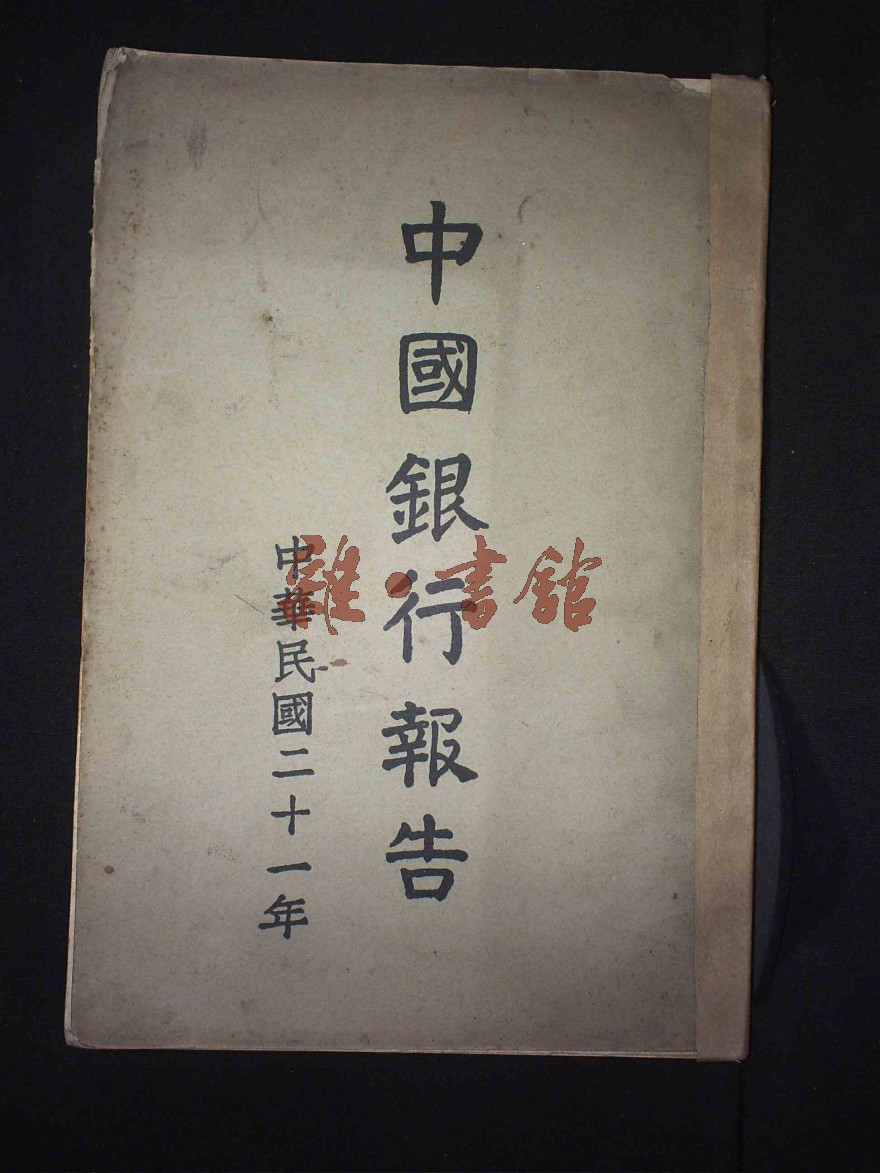 中國銀行報告
中華民國二十一年
雜·書館